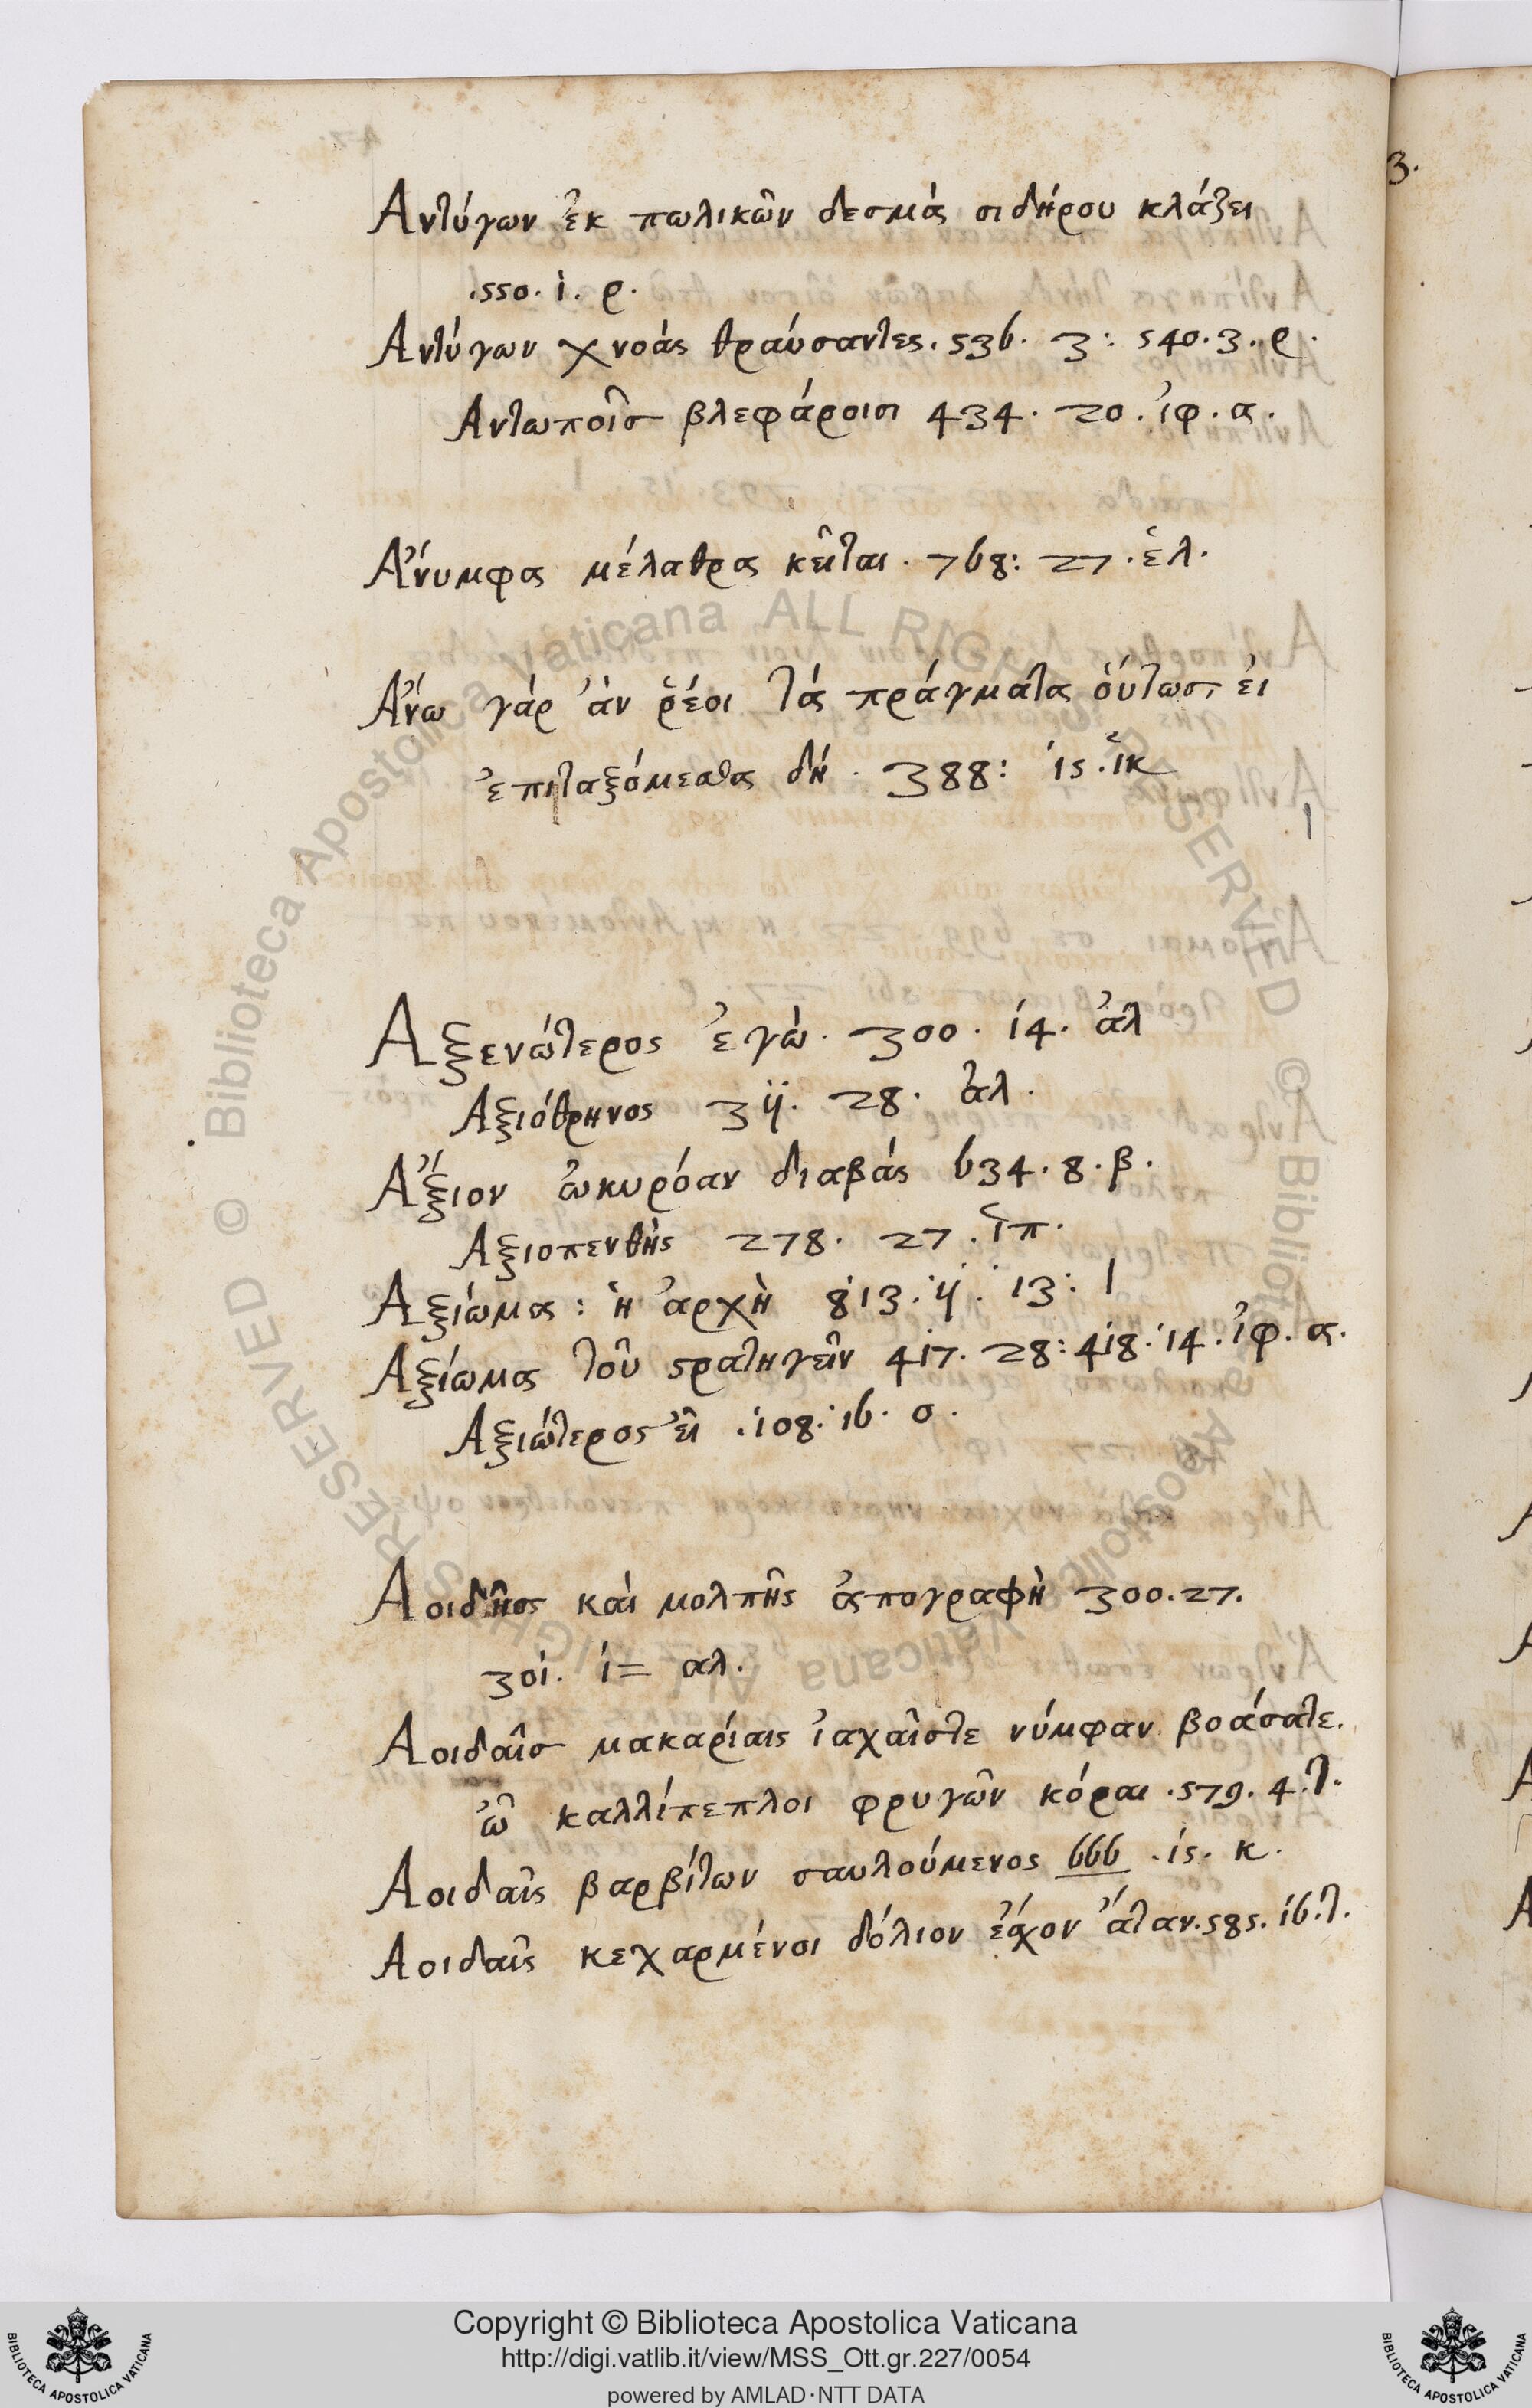 Αντύγων ἐκ πωλικῶν δεσμὰ σιδήρου κλάζει
.550. i. ρ.
Αντύγων χνοὰς θραύσαντες. 536. 3: 540. 3. ρ.
Αντωποῖσ βλεφάροισι 434. 20. ἰφ. α.
Ἄνυμφα μέλαθρα κεῖται. 768: 27. ἑλ.
Ἄνω γὰρ ἂν ῥέοι τὰ πράγματα οὕτωσ, εἰ
ἐπιταξόμεσθα δή. 388: 15. ἱκ
Αξενώτερος ἐγώ. 300. 14. ἀλ
Αξιόθρηνος 311. 28. ἀλ.
Ἄξιον ὠκυρόαν διαβὰς 634. 8. β.
Αξιοπενθὴς 278. 27. ἱπ.
Αξίωμα: ἡ ἀρχὴ 813. 11. 13: 1
Αξίωμα τοῦ στρατηγεῖν 417. 28: 418. 14. ἰφ. α.
Αξιώτερος εἶ .108. 16. σ.
Αοιδῆς καὶ μολπῆς ἀπογραφὴ 300. 27.
301. 1= αλ.
Αοιδαῖσ μακαρίαις ἰαχαῖστε νύμφαν βοάσατε.
ὦ καλλίπεπλοι φρυγῶν κόραι. 579. 4. τ.
Αοιδαῖς βαρβίτων σαυλούμενος 666. 15. κ.
Αοιδαῖς κεχαρμένοι δόλιον ἔσχον ἄταν. 585. 16. τ.
3.
Copyright © Biblioteca Apostolica Vaticana
http://digi.vatlib.it/view/MSS_Ott.gr.227/0054
powered by AMLAD·NTT DATA
BIBLIOTECA APOSTOLICA VATICANA
BIBLIOTECA APOSTOLICA VATICANA
© Biblioteca Apostolica Vaticana ALL RIGHTS RESERVED
© Biblioteca Apostolica Vaticana ALL RIGHTS RESERVED